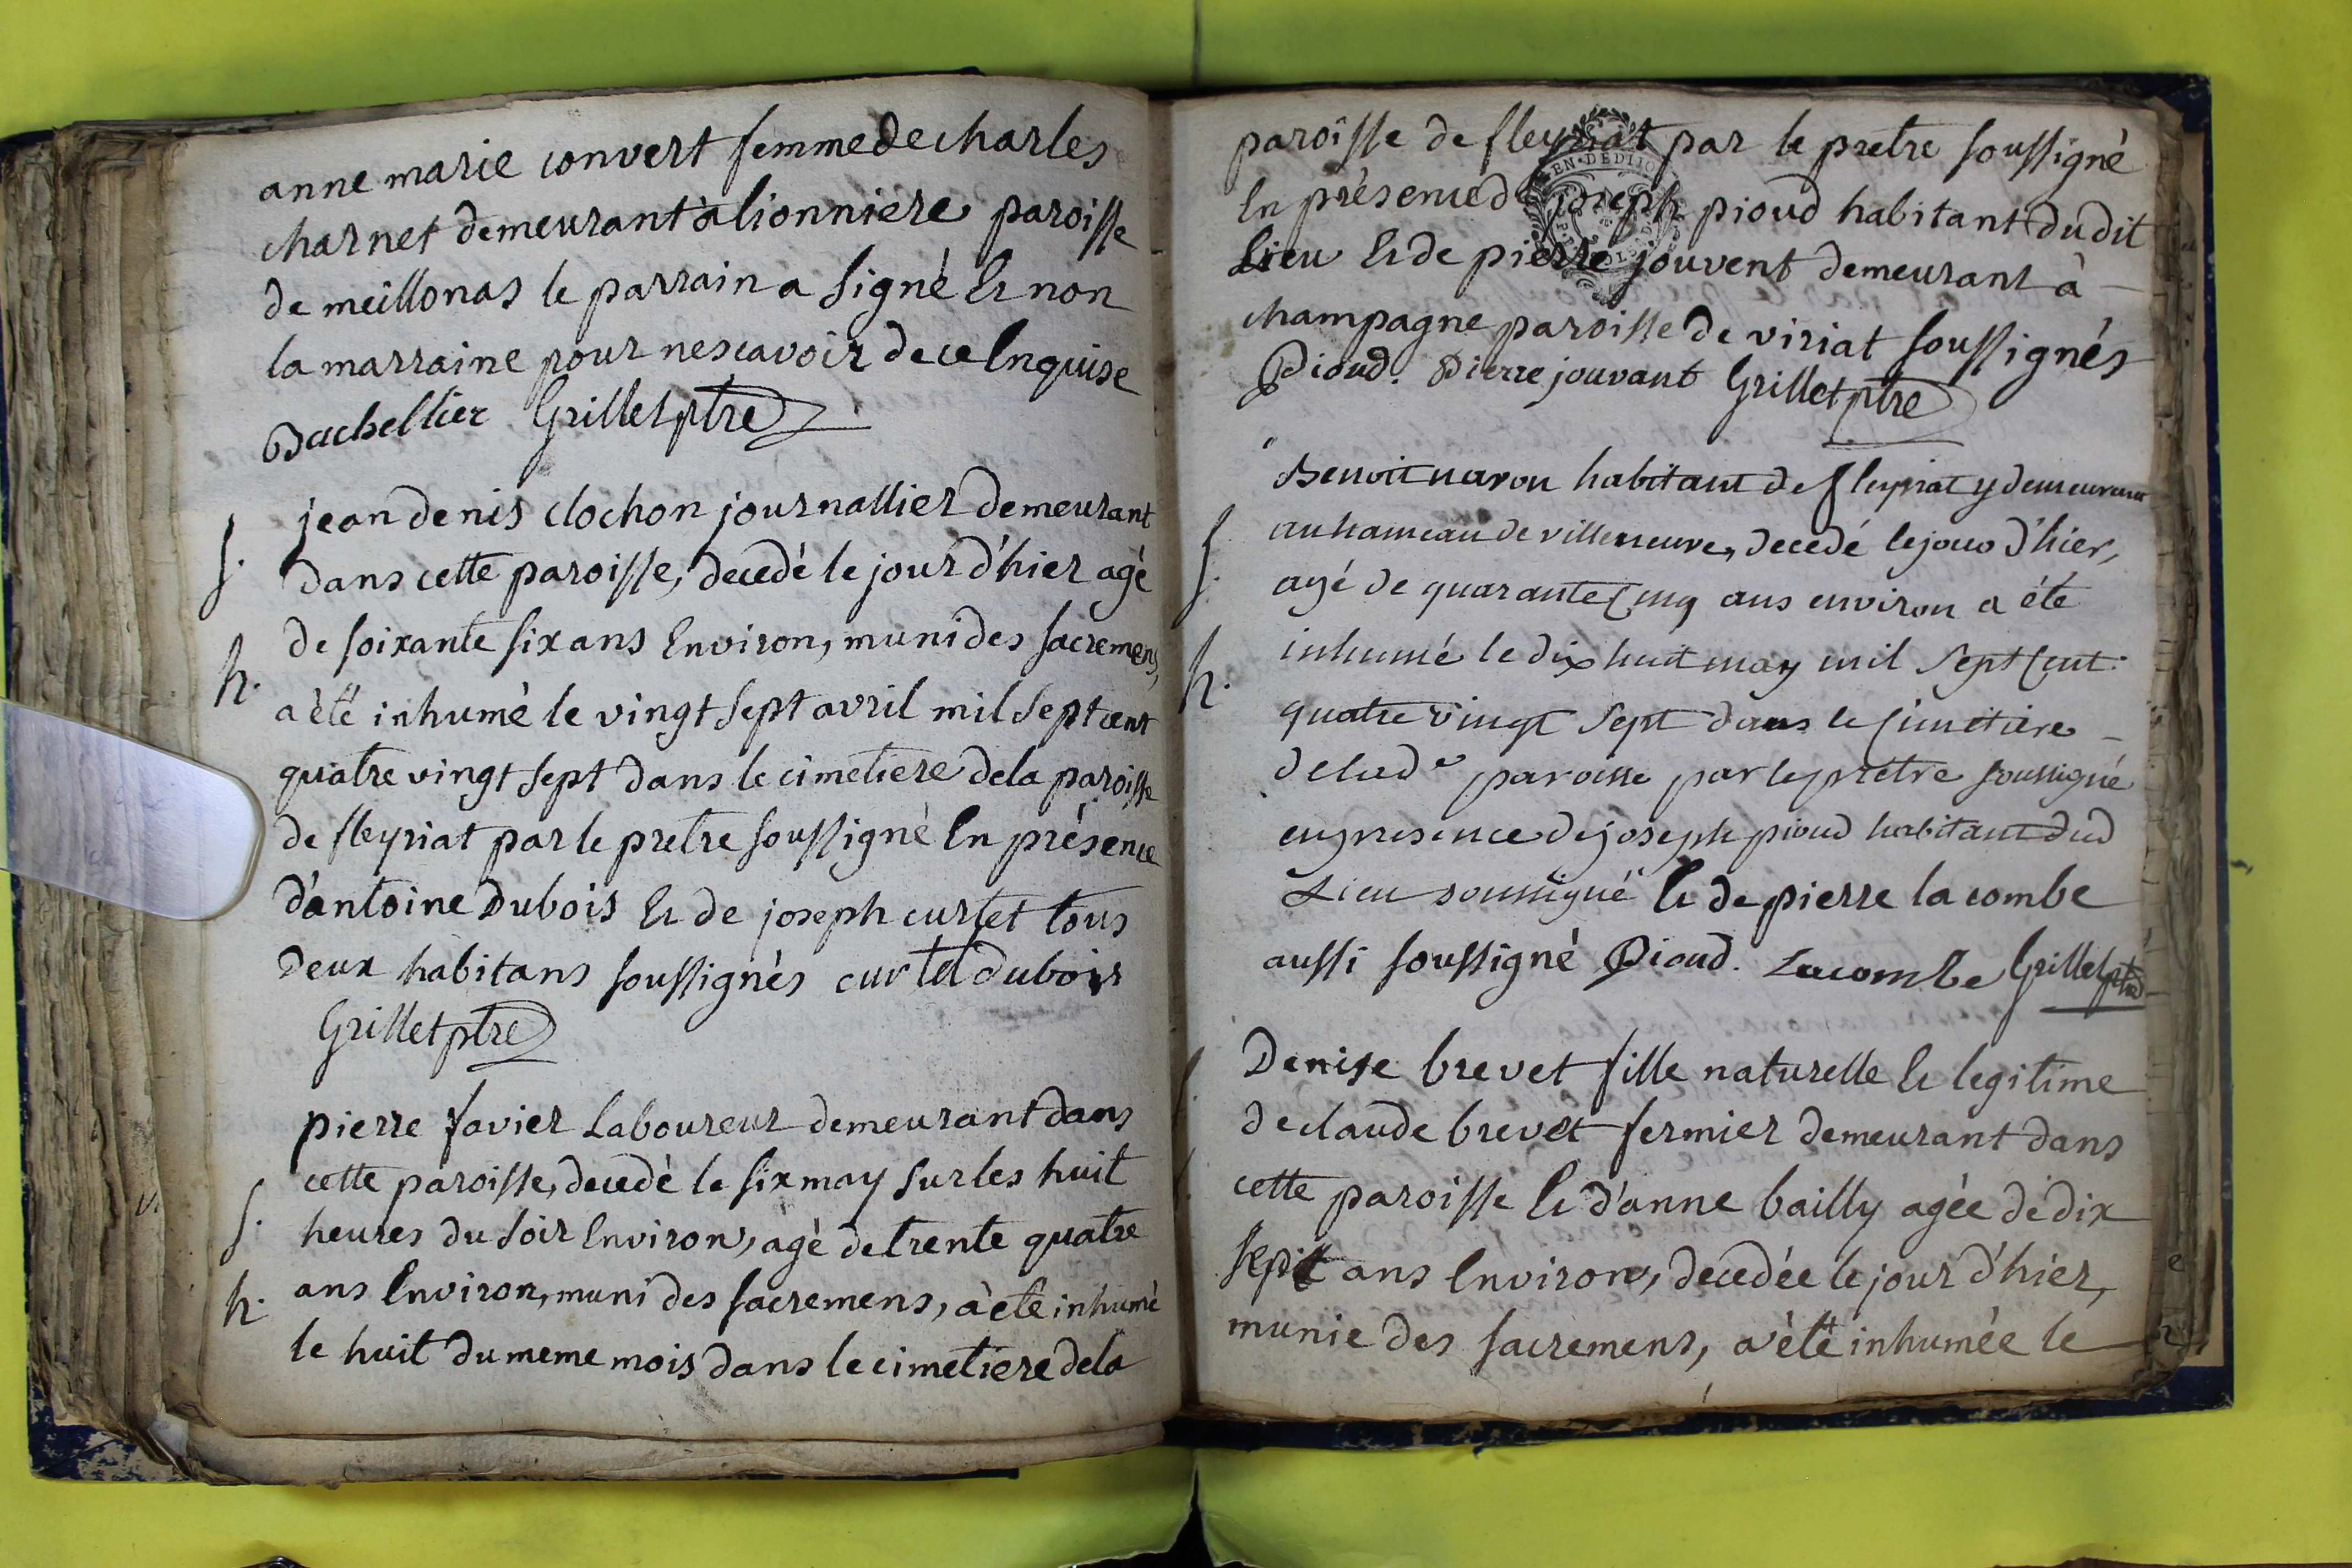 anne marie convert femme de charles
charnet demeurant à lionniere paroisse
de meillonas le parrain a signé et non
la marraine pour ne scavoir de ce enquise
Bachellier Grillet ptre
jean denis clochon journallier demeurant
s. dans cette paroisse, decedé le jour d'hier agé
de soixante six ans environ, muni des sacremens,
h. a été inhumé le vingt sept avril mil sept cent
quatre vingt sept dans le cimetiere de la paroisse
de fleyriat par le pretre soussigné en présence
d'antoine Dubois et de joseph curtet tous
deux habitans soussignés curtet dubois
Grillet ptre
pierre favier Laboureur demeurant dans
cette paroisse, decedé le six may sur les huit
s. heures du soir environ, agé de trente quatre
h. ans environ, muni des sacremens, a été inhumé
le huit du meme mois dans le cimetiere de la
paroisse de fleyriat par le pretre soussigné
en présence de joseph pioud habitant dudit
Lieu et de pierre jouvent demeurant à
champagne paroisse de viriat soussignés
Pioud. Pierre jouvant Grillet ptre
Benoit navon habitant de fleyriat y demeurant
s. au hameau de villeneuve, decedé le jour d'hier,
agé de quarante cinq ans environ a été
h. inhumé le dix huit may mil sept cent
quatre vingt sept dans le cimetière
de lad.e paroisse par le prêtre soussigné
en presence de joseph pioud habitant dud
Lieu soussigné et de pierre la combe
aussi soussigné Pioud. Lacombe Grillet ptre
Denise brevet fille naturelle et legitime
de claude brevet fermier demeurant dans
cette paroisse et d'anne bailly agée de dix
sept ans environ, decedée le jour d'hier,
munie des sacremens, a été inhumée le